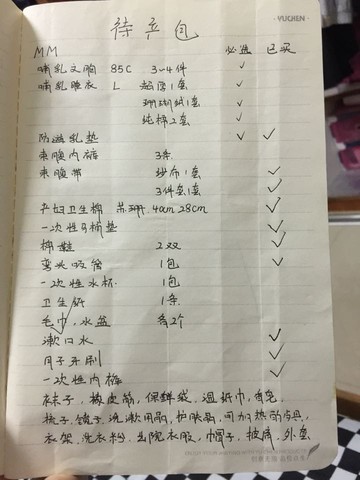 YUCHEN
待产包
MM 必选 已买
哺乳文胸 85C 3~4件 ✓
哺乳睡衣 L 1套 ✓
珊瑚绒1套 ✓
纯棉2套 ✓
防溢乳垫 ✓ ✓
束腹内裤 3条
束腹带 纱布1套 ✓
3件套1套 ✓
产妇卫生棉 苏珊 40cm 28cm ✓
一次性马桶垫 ✓
棉鞋 2双 ✓
弯头吸管 1包 ✓
一次性水杯 1包
卫生纸 1条
毛巾,水盆 各2个
漱口水 ✓
月子牙刷 ✓
一次性内裤 ✓
袜子,橡皮筋,保鲜袋,湿纸巾,
梳子,镜子,洗漱用品,护肤品,可加热的
衣架,洗衣粉,出院衣服,帽子,披肩,外套